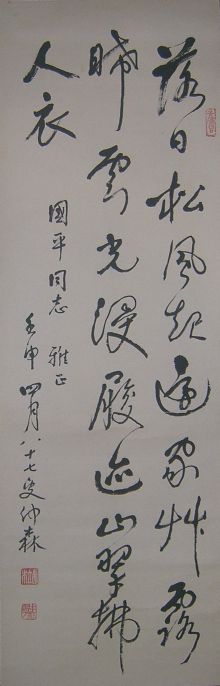 落日松風起還家艸露
晞雲光侵履迹山翠拂
人衣
國平同志 雅正
壬申四月八十七叟仲森